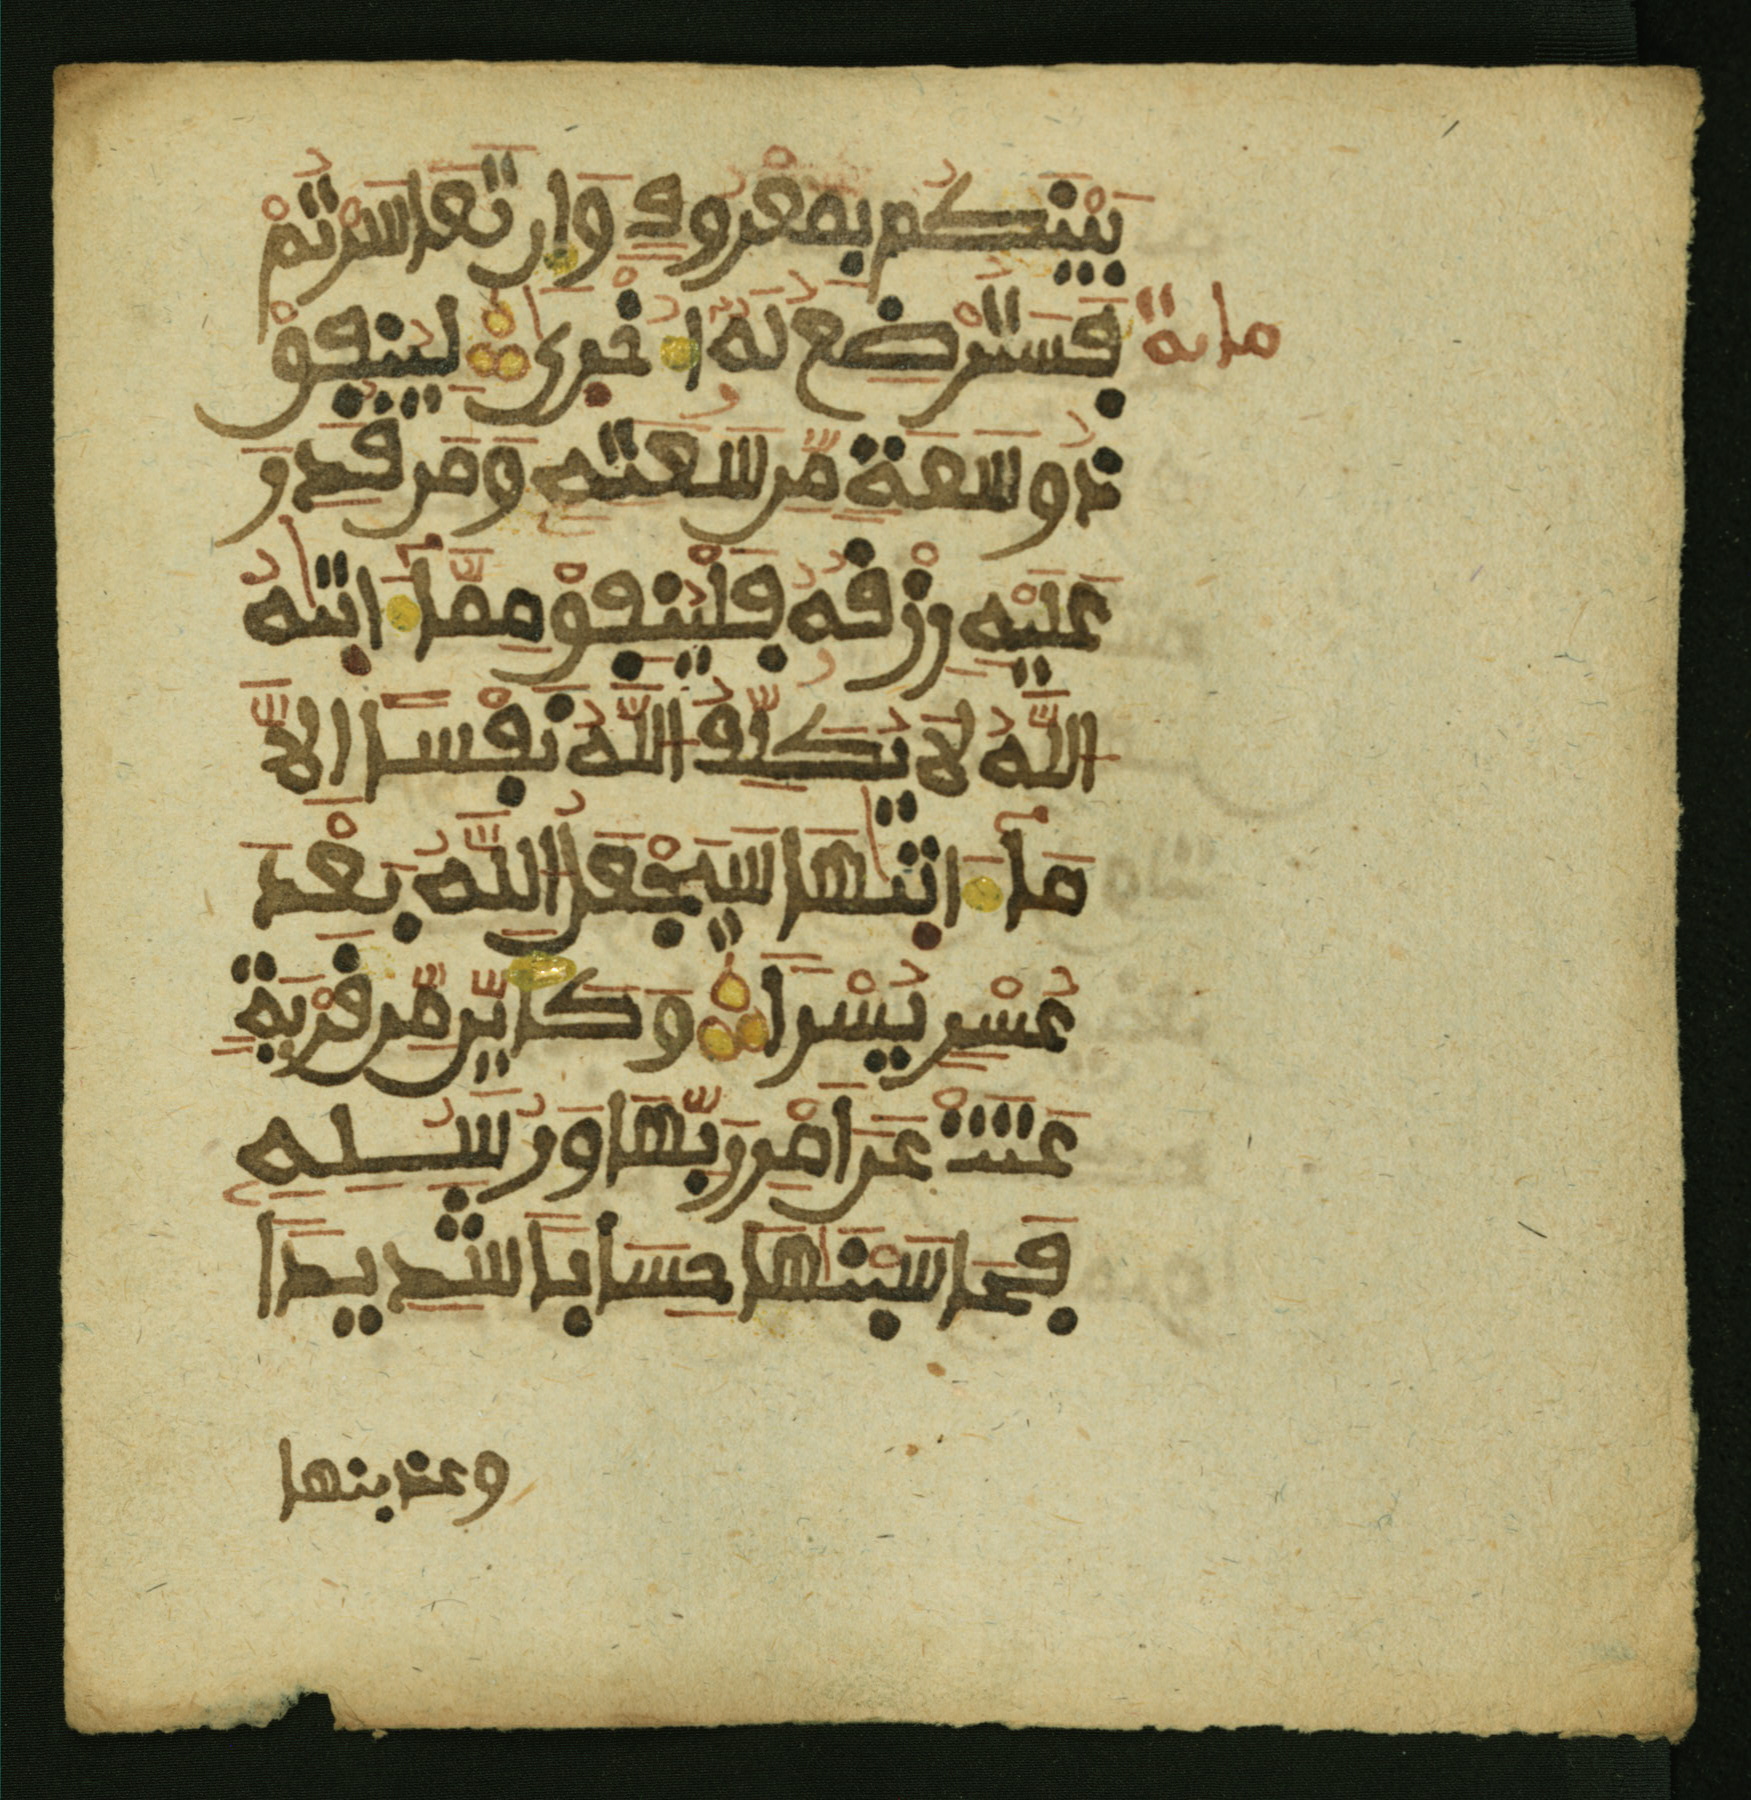 بَيْنَكُم بِمَعْرُوفٍ وَإِن تَعَاسَرْتُمْ
فَسَتُرْضِعُ لَهُۥٓ أُخْرَىٰ لِيُنفِقْ
مائة
ذُو سَعَةٍ مِّن سَعَتِهِۦ وَمَن قُدِرَ
عَلَيْهِ رِزْقُهُۥ فَلْيُنفِقْ مِمَّآ ءَاتَىٰهُ
اللَّهُ لَا يُكَلِّفُ اللَّهُ نَفْسًا إِلَّا
مَآ ءَاتَىٰهَا سَيَجْعَلُ اللَّهُ بَعْدَ
عُسْرٍ يُسْرًا وَكَأَيِّن مِّن قَرْيَةٍ
عَتَتْ عَنْ أَمْرِ رَبِّهَا وَرُسُلِهِۦ
فَحَاسَبْنَٰهَا حِسَابًا شَدِيدًا
وعذبنها